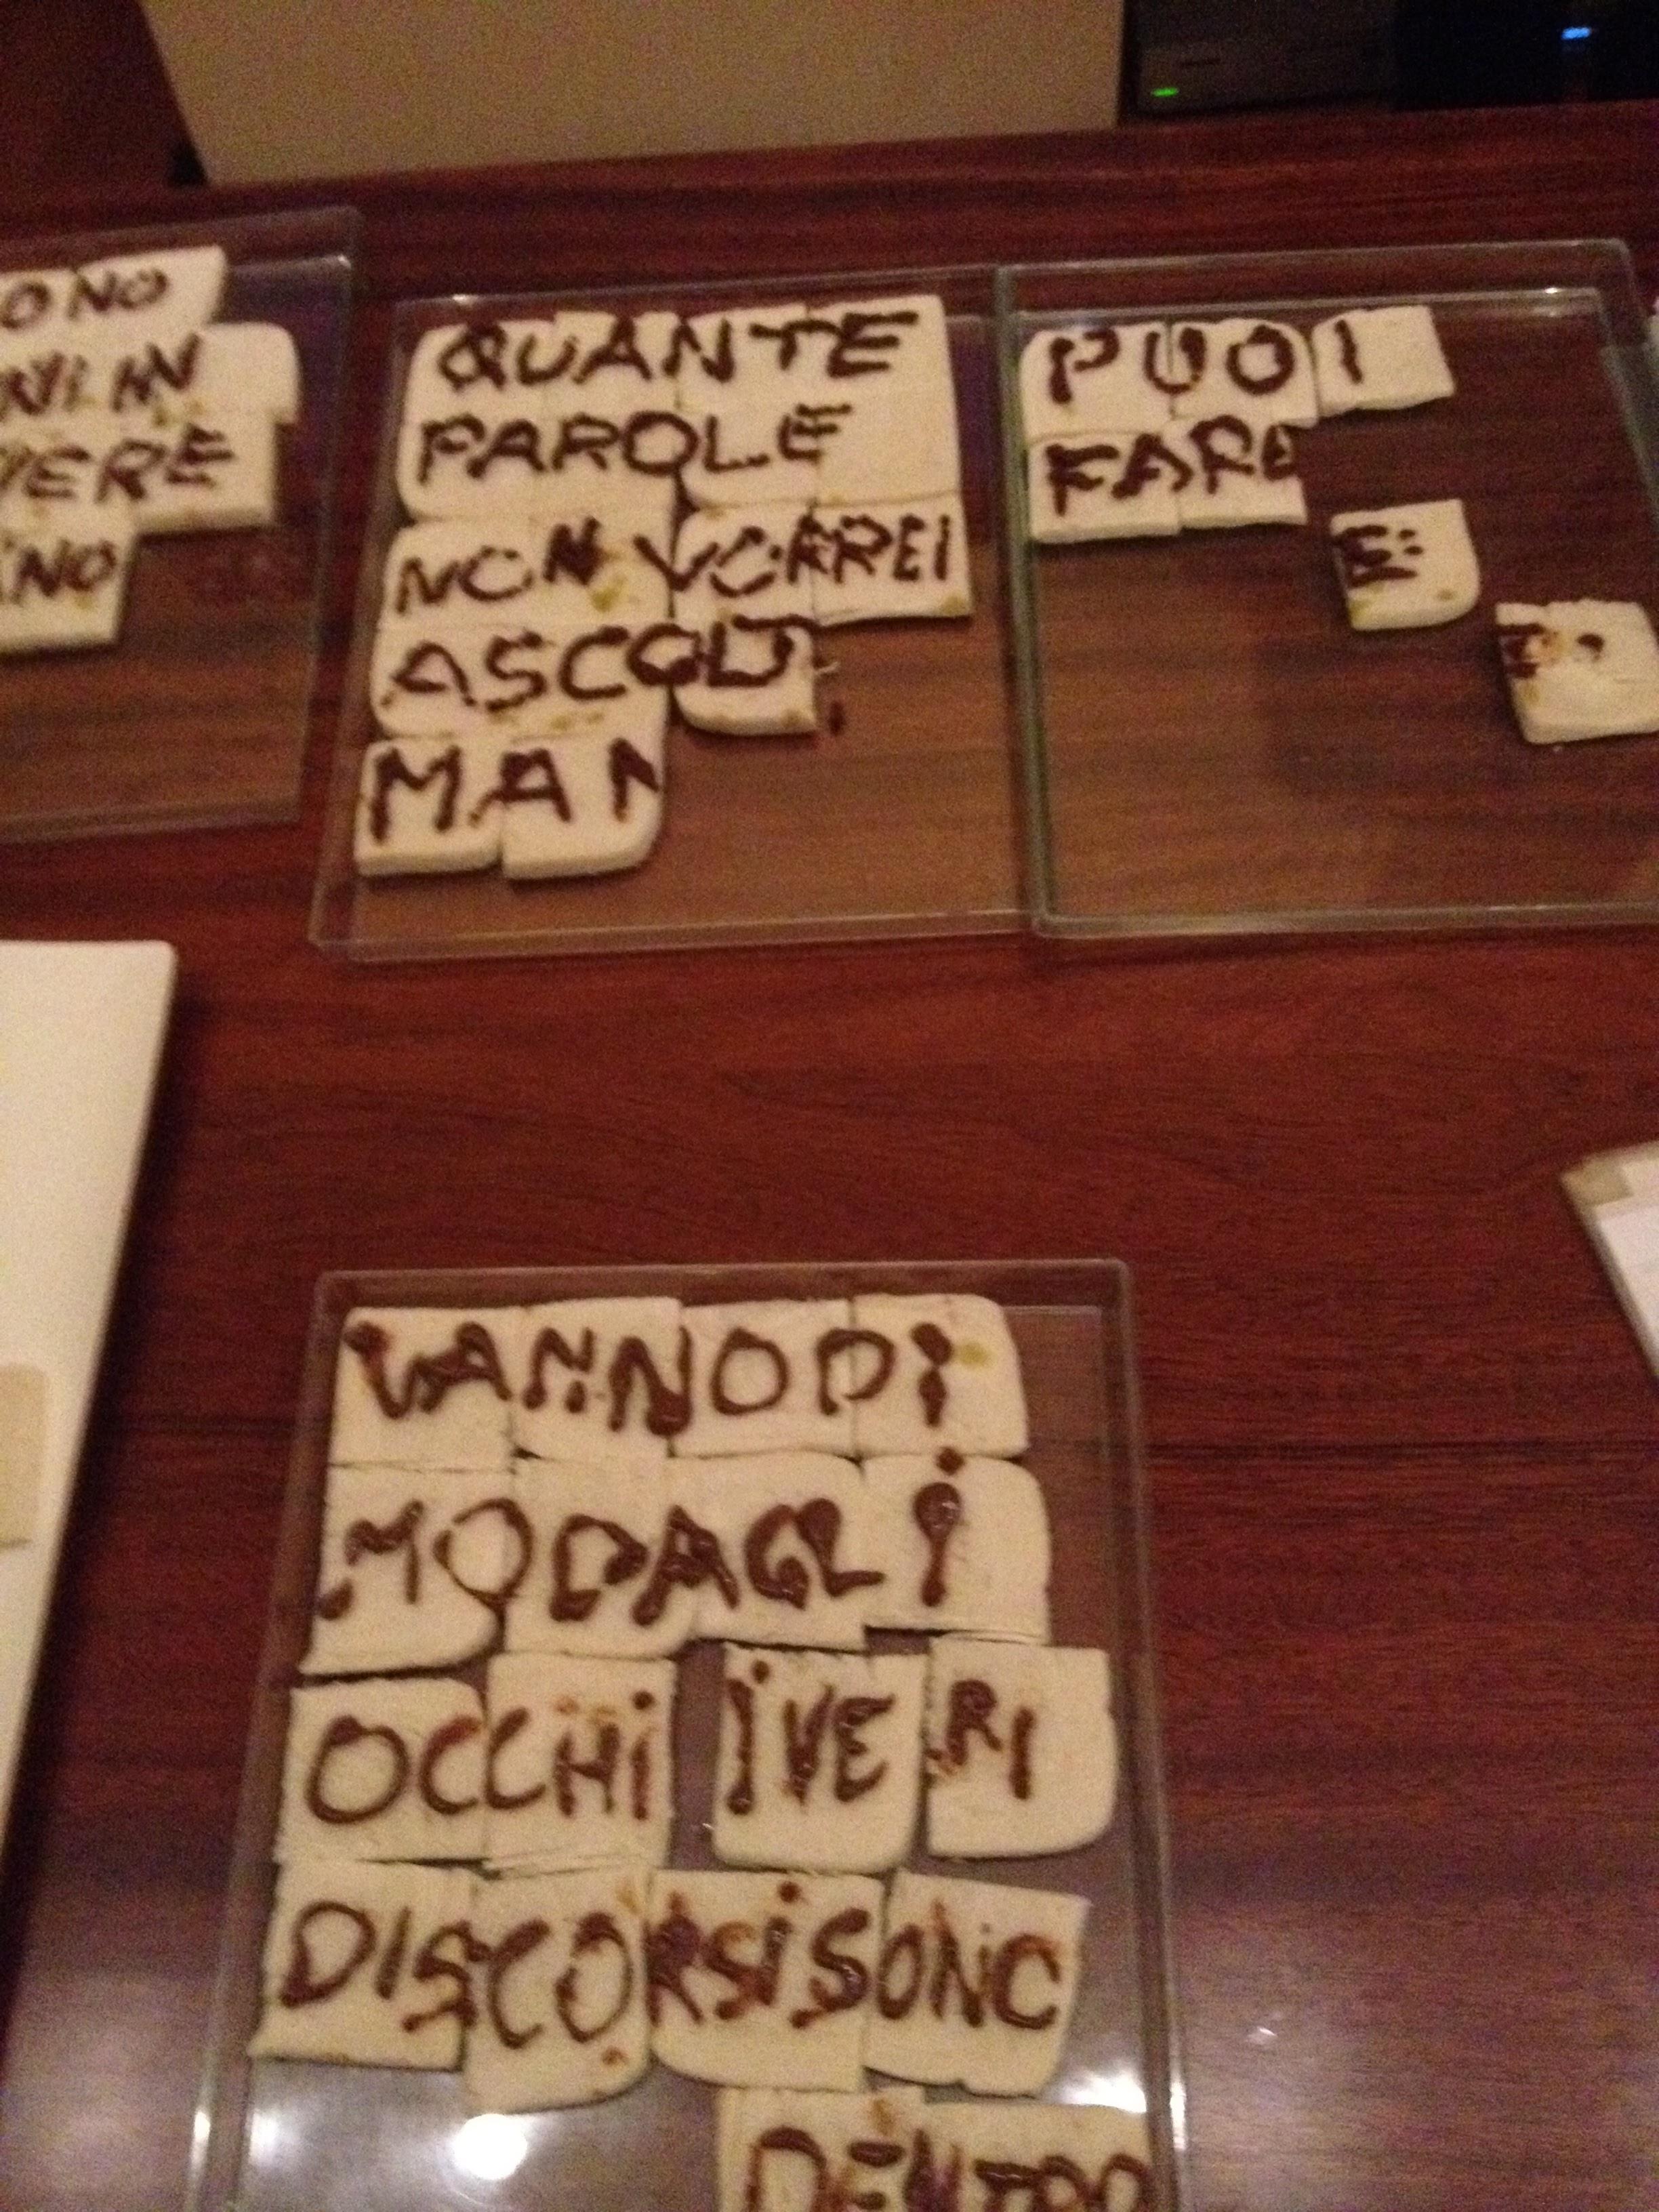 ONO
NI IN
VERE
ANO
QUANTE
PAROLE
NON VORREI
ASCOLT
MA N
PUOI
FARE
VANNO DI
MODAGLI
OCCHI I VERI
DISCORSI SONO
DENTRO